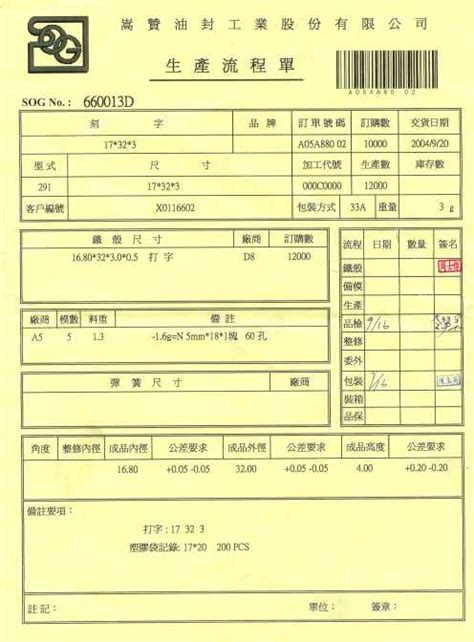 SOG
嵩贊油封工業股份有限公司
生產流程單
A05A880 02
SOG No.: 660013D
刻字 品牌 訂單號碼 訂購數 交貨日期
17*32*3 A05A880 02 10000 2004/9/20
型式 尺寸 加工代號 生產數 庫存數
291 17*32*3 000C0000 12000
客戶編號 X0116602 包裝方式 33A 重量 3 g
鐵殼尺寸 廠商 訂購數
16.80*32*3.0*0.5 打字 D8 12000
廠商 模數 料重 備註
A5 5 1.3 -1.6g=N 5mm*18*1塊 60孔
彈簧尺寸 廠商
流程 日期 數量 簽名
鐵殼
備模
生產
品檢 9/16
整修
委外
包裝 9/16
裝箱
品保
角度 整修內徑 成品內徑 公差要求 成品外徑 公差要求 成品高度 公差要求
16.80 +0.05 -0.05 32.00 +0.05 -0.05 4.00 +0.20 -0.20
備註要項:
打字:17 32 3
塑膠袋記錄: 17*20 200 PCS
註記: 單位: 簽章: